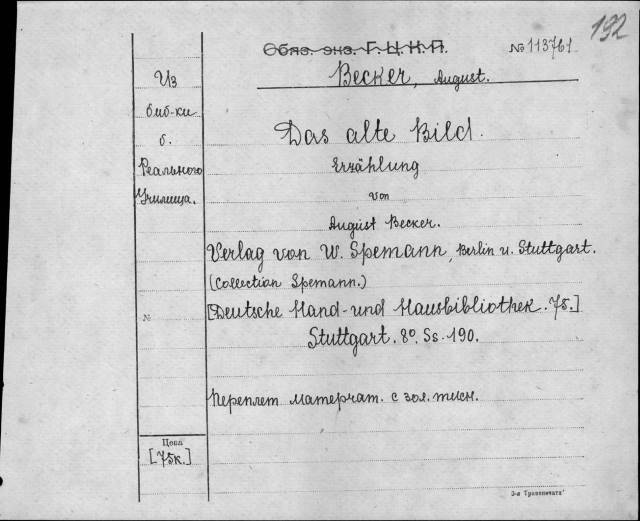 192
Обяз. экз. Г.Ц.К.П.
№ 113761
Becker, August.
Из
биб-ки
б.
Реального
Училища.
Das alte Bild.
Erzählung
von
August Becker.
Verlag von W. Spemann, Berlin u. Stuttgart.
(Collection Spemann.)
[Deutsche Hand- und Hausbibliothek. 75.]
Stuttgart. 8°. Ss. 190.
№
Переплет матерчат. с зол. тисн.
Цена
[75к.]